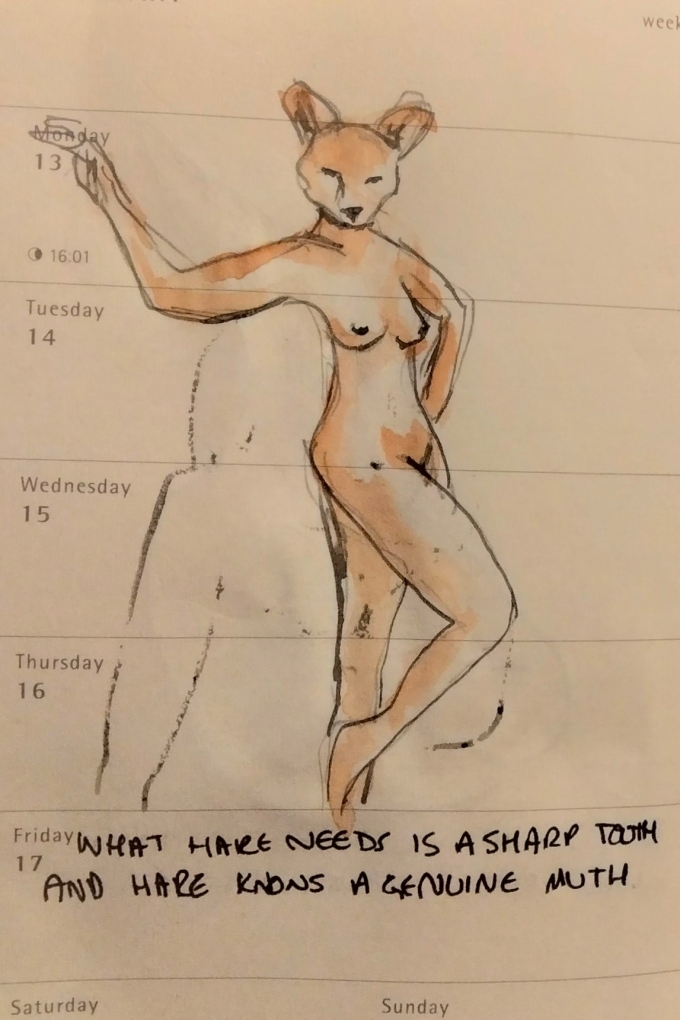 week
Monday
13
16.01
Tuesday
14
Wednesday
15
Thursday
16
Friday
17
WHAT HARE NEEDS IS A SHARP TOOTH
AND HARE KNOWS A GENUINE MUTH
Saturday Sunday